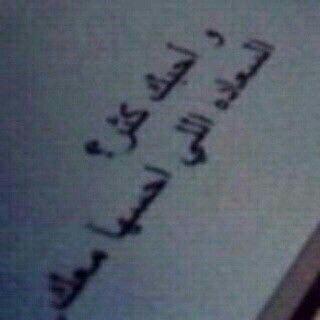 و احبك كثر؟
السعاده اللي احسها معك